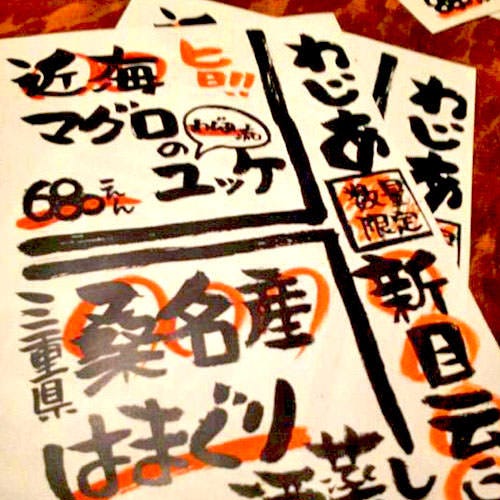 近海
旨!!
マグロ
の
わじあ流
ユッケ
680えん
三重県
桑名産
はまぐり
酒蒸し
わじあ
数量
限定
新目玉
わじあ